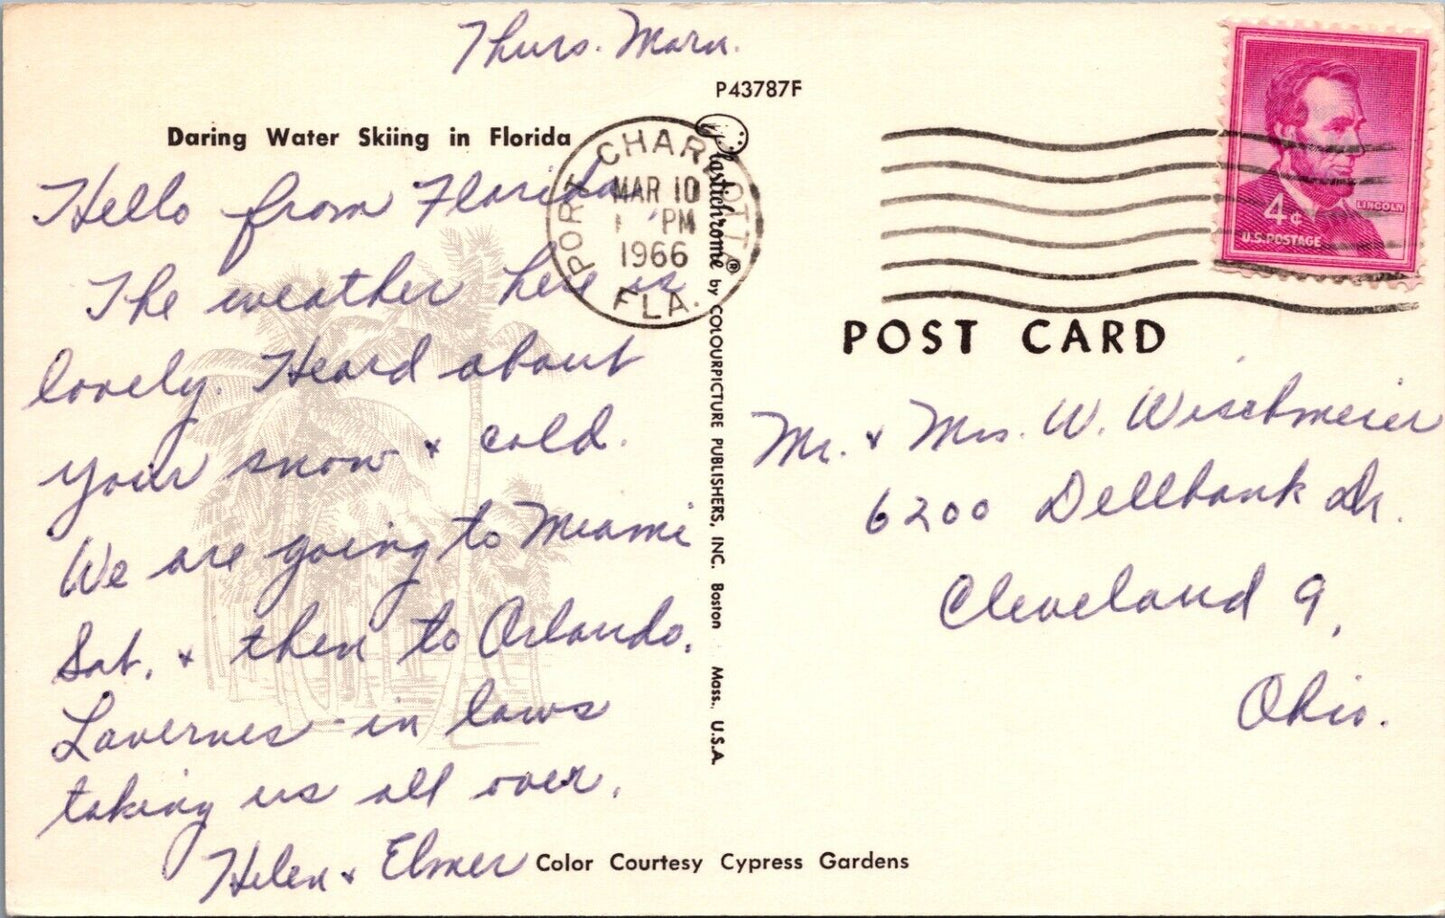 Thurs. Morn.
P43787F
Daring Water Skiing in Florida
Hello from Florida
The weather here is
lovely. Heard about
your snow & cold.
We are going to Miami
Sat. & then to Orlando.
Lavernes in laws
taking us all over.
Helen & Elmer
Color Courtesy Cypress Gardens
PORT CHARLOTTE
MAR 10
PM
1966
FLA.
Plastichrome® by COLOURPICTURE PUBLISHERS, INC. Boston Mass., U.S.A.
LINCOLN
4¢
U.S. POSTAGE
POST CARD
Mr. & Mrs. W. Wischmeier
6200 Dellbank Dr.
Cleveland 9,
Ohio.